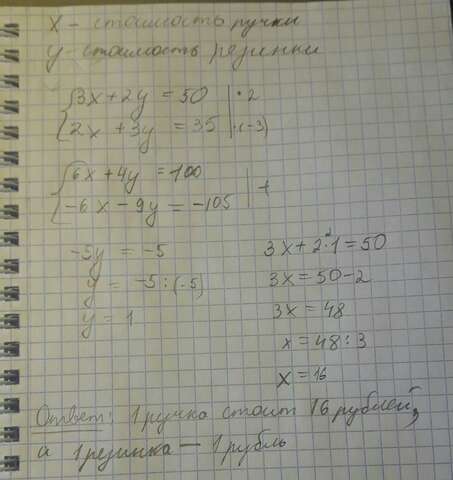 x - стоимость ручки
y - стоимость резинки
{3x + 2y = 50 | · 2
{2x + 3y = 35 | · (-3)
{6x + 4y = 100
{-6x - 9y = -105 | +
-5y = -5
y = -5 : (-5)
y = 1
3x + 2 · 1 = 50
3x = 50 - 2
3x = 48
x = 48 : 3
x = 16
Ответ: 1 ручка стоит 16 рублей,
а 1 резинка — 1 рубль